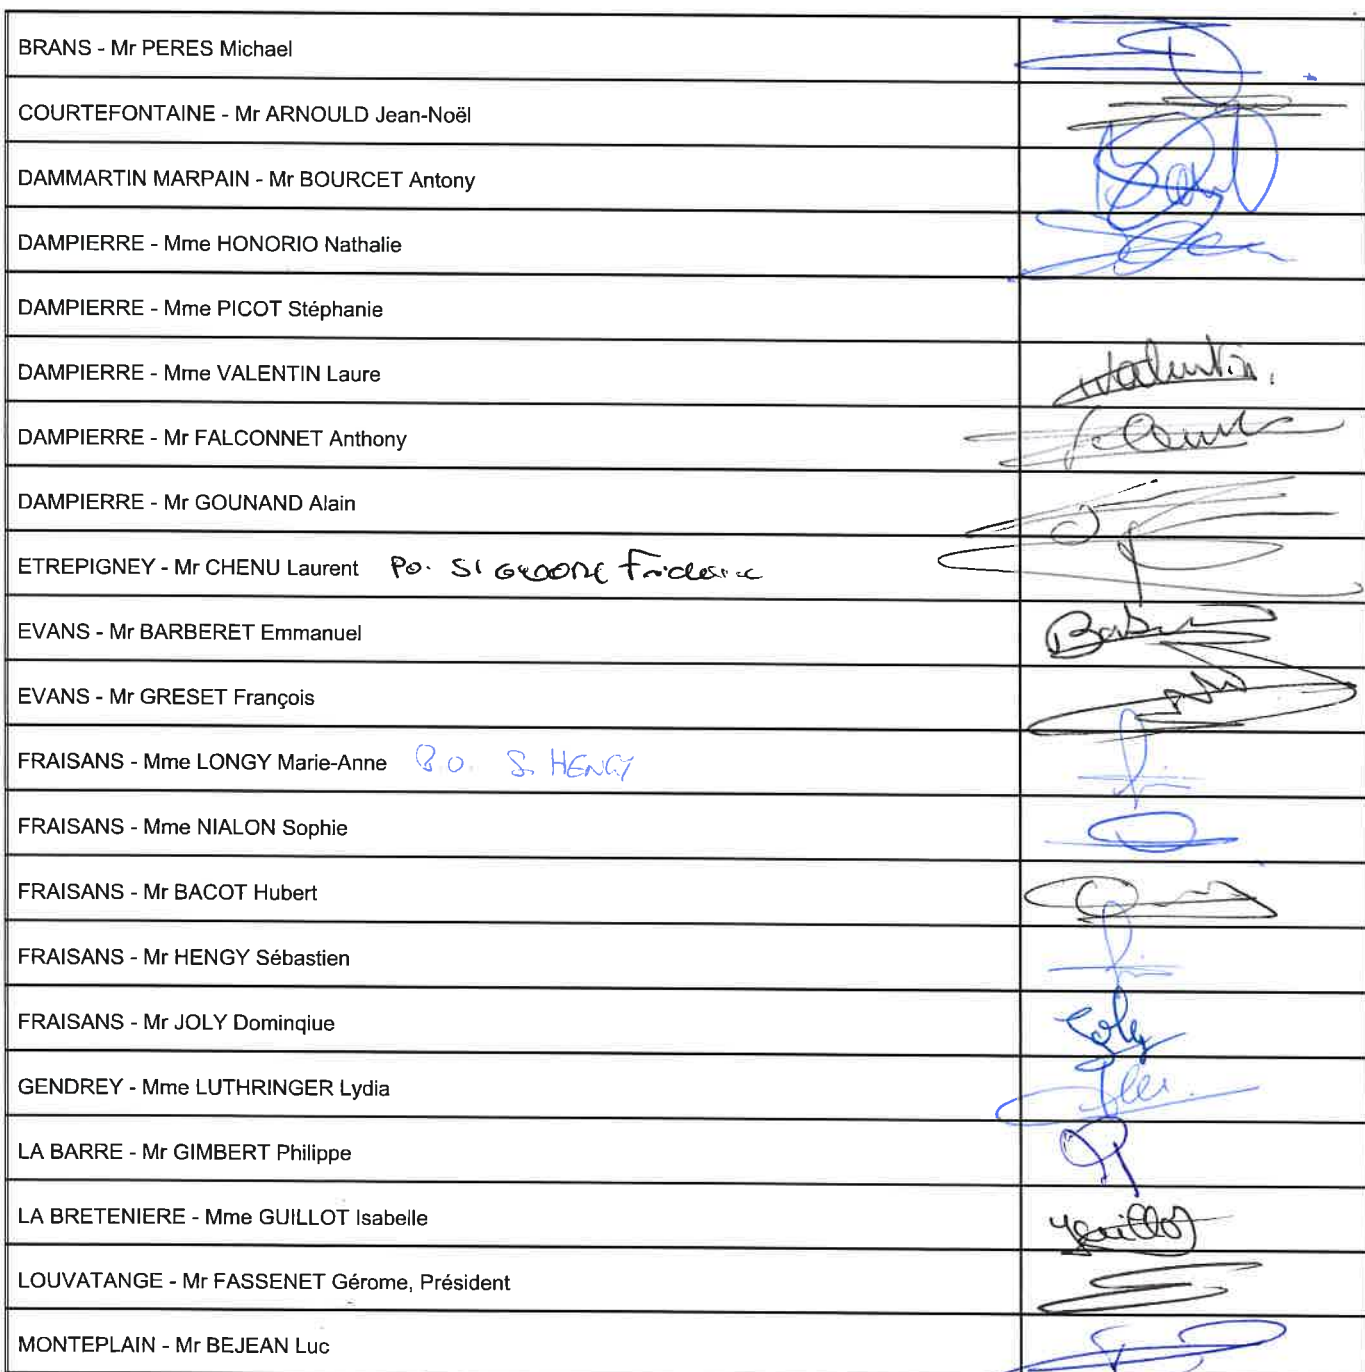 BRANS - Mr PERES Michael
COURTEFONTAINE - Mr ARNOULD Jean-Noël
DAMMARTIN MARPAIN - Mr BOURCET Antony
DAMPIERRE - Mme HONORIO Nathalie
DAMPIERRE - Mme PICOT Stéphanie
DAMPIERRE - Mme VALENTIN Laure
Valentin.
DAMPIERRE - Mr FALCONNET Anthony
DAMPIERRE - Mr GOUNAND Alain
ETREPIGNEY - Mr CHENU Laurent Po.
EVANS - Mr BARBERET Emmanuel
EVANS - Mr GRESET François
FRAISANS - Mme LONGY Marie-Anne P.O. S. HENGY
FRAISANS - Mme NIALON Sophie
FRAISANS - Mr BACOT Hubert
FRAISANS - Mr HENGY Sébastien
FRAISANS - Mr JOLY Dominqiue
Joly
GENDREY - Mme LUTHRINGER Lydia
LA BARRE - Mr GIMBERT Philippe
LA BRETENIERE - Mme GUILLOT Isabelle
LOUVATANGE - Mr FASSENET Gérome, Président
MONTEPLAIN - Mr BEJEAN Luc